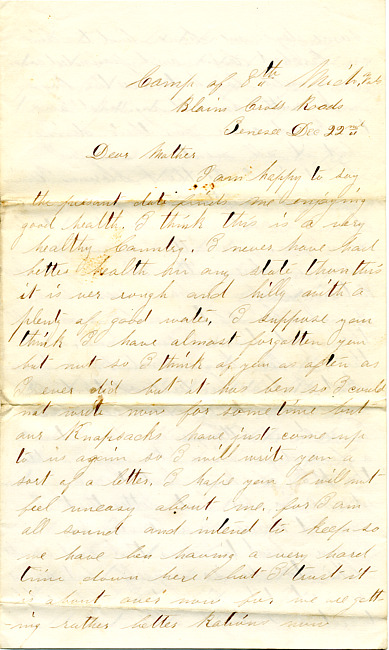 Camp of 8th Mich.
Blains Cross Roads
Tenesee Dec 22nd
Dear Mother
I am happy to say
the present date finds me enjoying
good health. I think this is a very
healthy Country. I never have had
better health in any state than this
it is ver rough and hilly with a
plenty of good water. I suppose you
think I have almost forgotten you
but not so I think of you as often as
I ever did but it has ben so I could
not write now for some time but
our Knapsacks have just come up
to us again so I will write you a
sort of a letter. I hope you will not
feel uneasy about me. for I am
all sound and intend to keep so
we have ben having a very hard
time down here but I trust it
is about over now for we are gett-
ing rather better Rations now